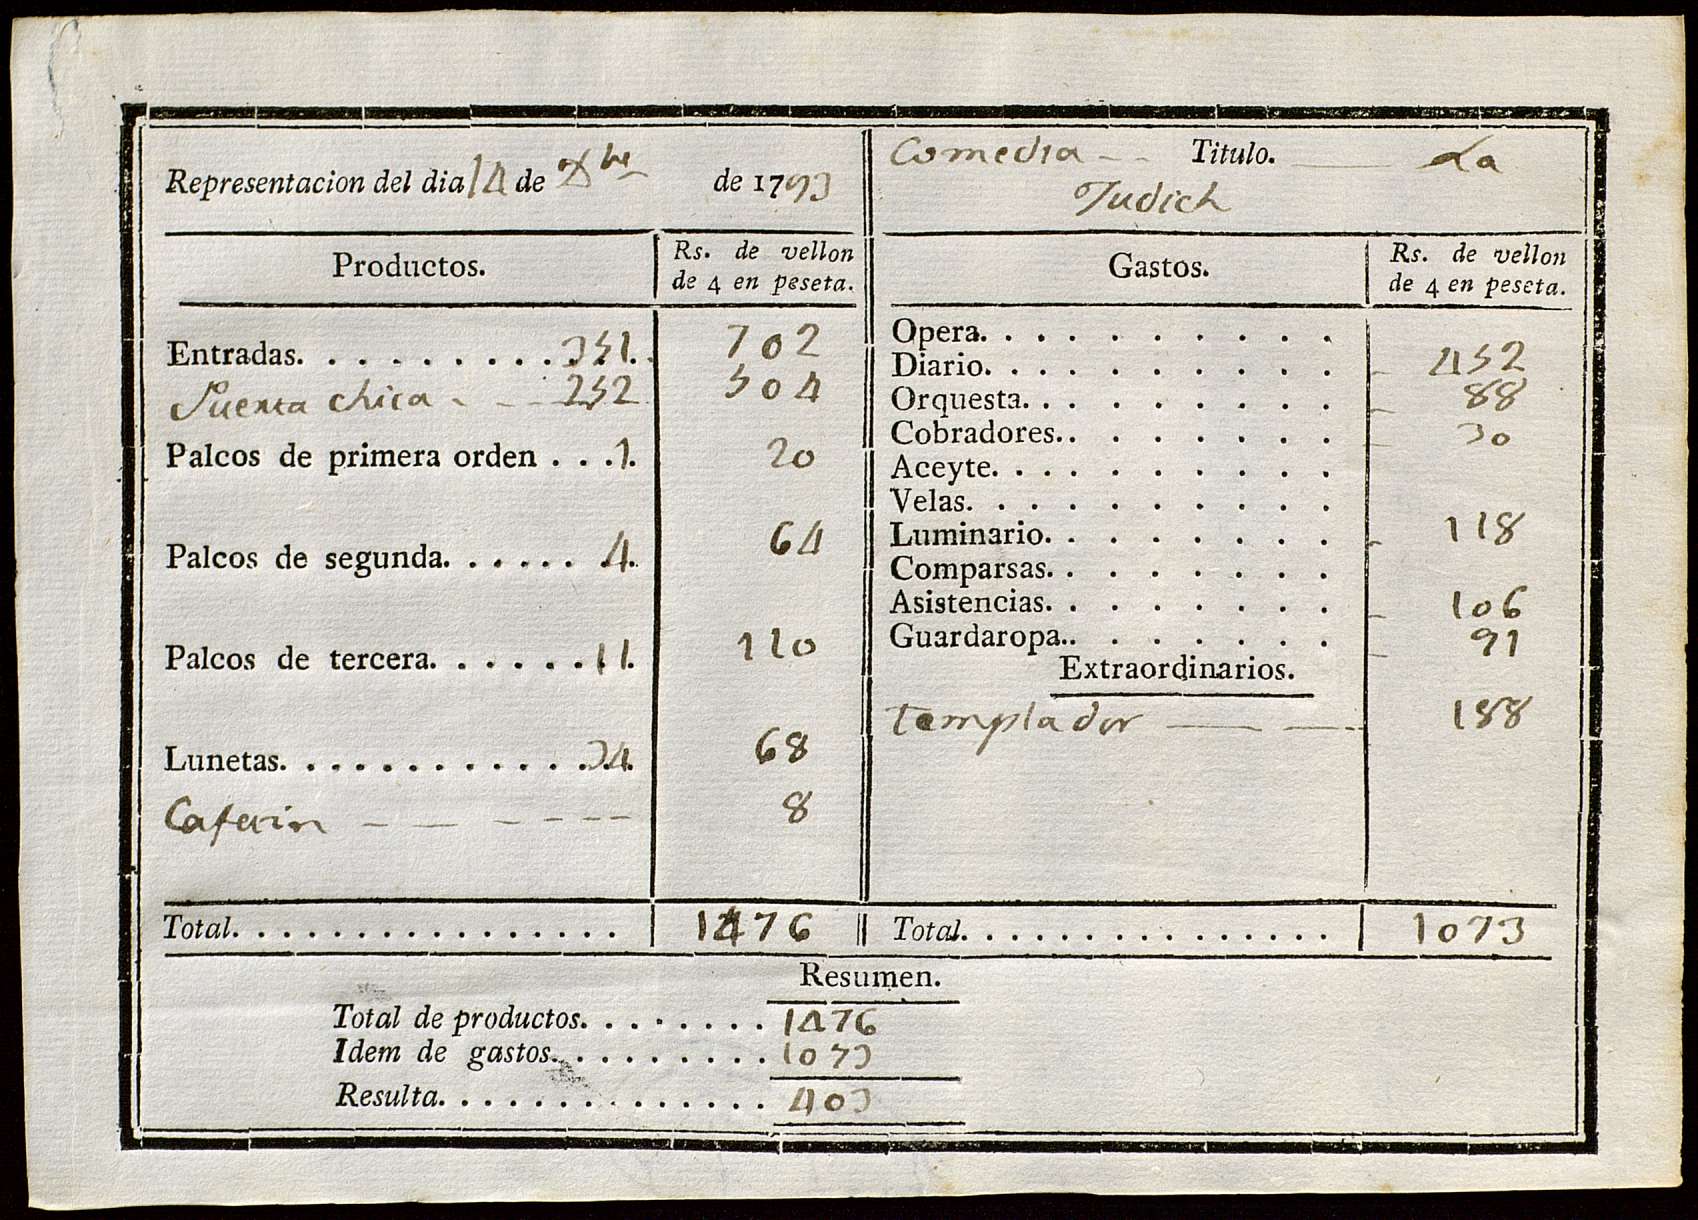 Representacion del dia 14 de Xbre de 1793
Productos. Rs. de vellon de 4 en peseta.
Entradas. 351. 702
Puerta chica 252 504
Palcos de primera orden 1. 20
Palcos de segunda. 4. 64
Palcos de tercera. 11. 110
Lunetas. 34. 68
8
Total. 1476
Comedia Titulo. La
Judich
Gastos. Rs. de vellon de 4 en peseta.
Opera.
Diario. 452
Orquesta. 88
Cobradores.. 30
Aceyte.
Velas.
Luminario. 118
Comparsas.
Asistencias. 106
Guardaropa.. 91
Extraordinarios.
templador 188
Total. 1073
Resumen.
Total de productos. 1476
Idem de gastos. 1073
Resulta. 403